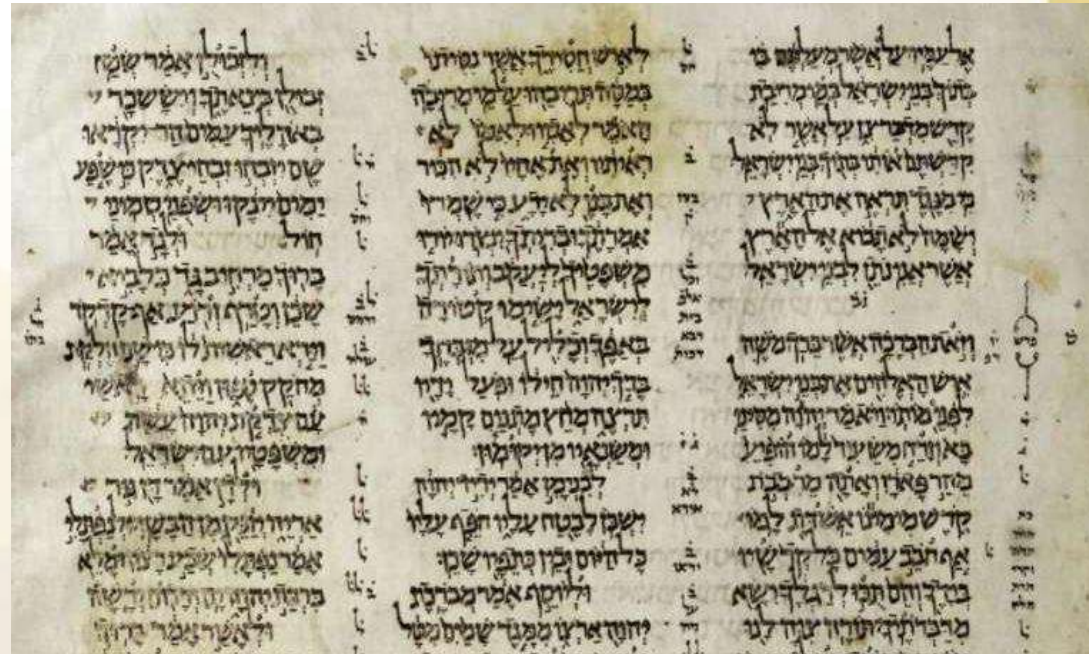 אל עמיו על אשר מעלתם בי
בתוך בני ישראל במי מריבת
קדש מדבר צן על אשר לא
קדשתם אותי בתוך בני ישראל
כי מנגד תראה את הארץ
ושמה לא תבוא אל הארץ
אשר אני נתן לבני ישראל
וזאת הברכה אשר ברך משה
איש האלהים את בני ישראל
לפני מותו ויאמר יהוה מסיני
בא וזרח משעיר למו הופיע
מהר פארן ואתה מרבבת
קדש מימינו אשדת למו
אף חבב עמים כל קדשיו
בידך והם תכו לרגלך ישא
מדברתיך תורה צוה לנו
לאיש חסידך אשר נסיתו
במסה תריבהו על מי מריבה
האמר לאביו ולאמו לא
ראיתיו ואת אחיו לא הכיר
ואת בנו לא ידע כי שמרו
אמרתך ובריתך ינצרו יורו
משפטיך ליעקב ותורתך
לישראל ישימו קטורה
באפך וכליל על מזבחך
ברך יהוה חילו ופעל ידיו
תרצה מחץ מתנים קמיו
ומשנאיו מן יקומון
לבנימן אמר ידיד יהוה
ישכן לבטח עליו חפף עליו
כל היום ובין כתפיו שכן
וליוסף אמר מברכת
יהוה ארצו ממגד שמים מטל
ולזבולן אמר שמח
זבולן בצאתך ויששכר
באהליך עמים הר יקראו
שם יזבחו זבחי צדק כי שפע
ימים יינקו ושפני טמוני
חול ולגד אמר
ברוך מרחיב גד כלביא
שכן וטרף זרוע אף קדקד
וירא ראשית לו כי שם חלקת
מחקק ספון ויתא ראשי
עם צדקת יהוה עשה
ומשפטיו עם ישראל
ולדן אמר דן גור
אריה יזנק מן הבשן ולנפתלי
אמר נפתלי שבע רצון ומלא
ברכת יהוה ים ודרום ירשה
ולאשר אמר ברוך